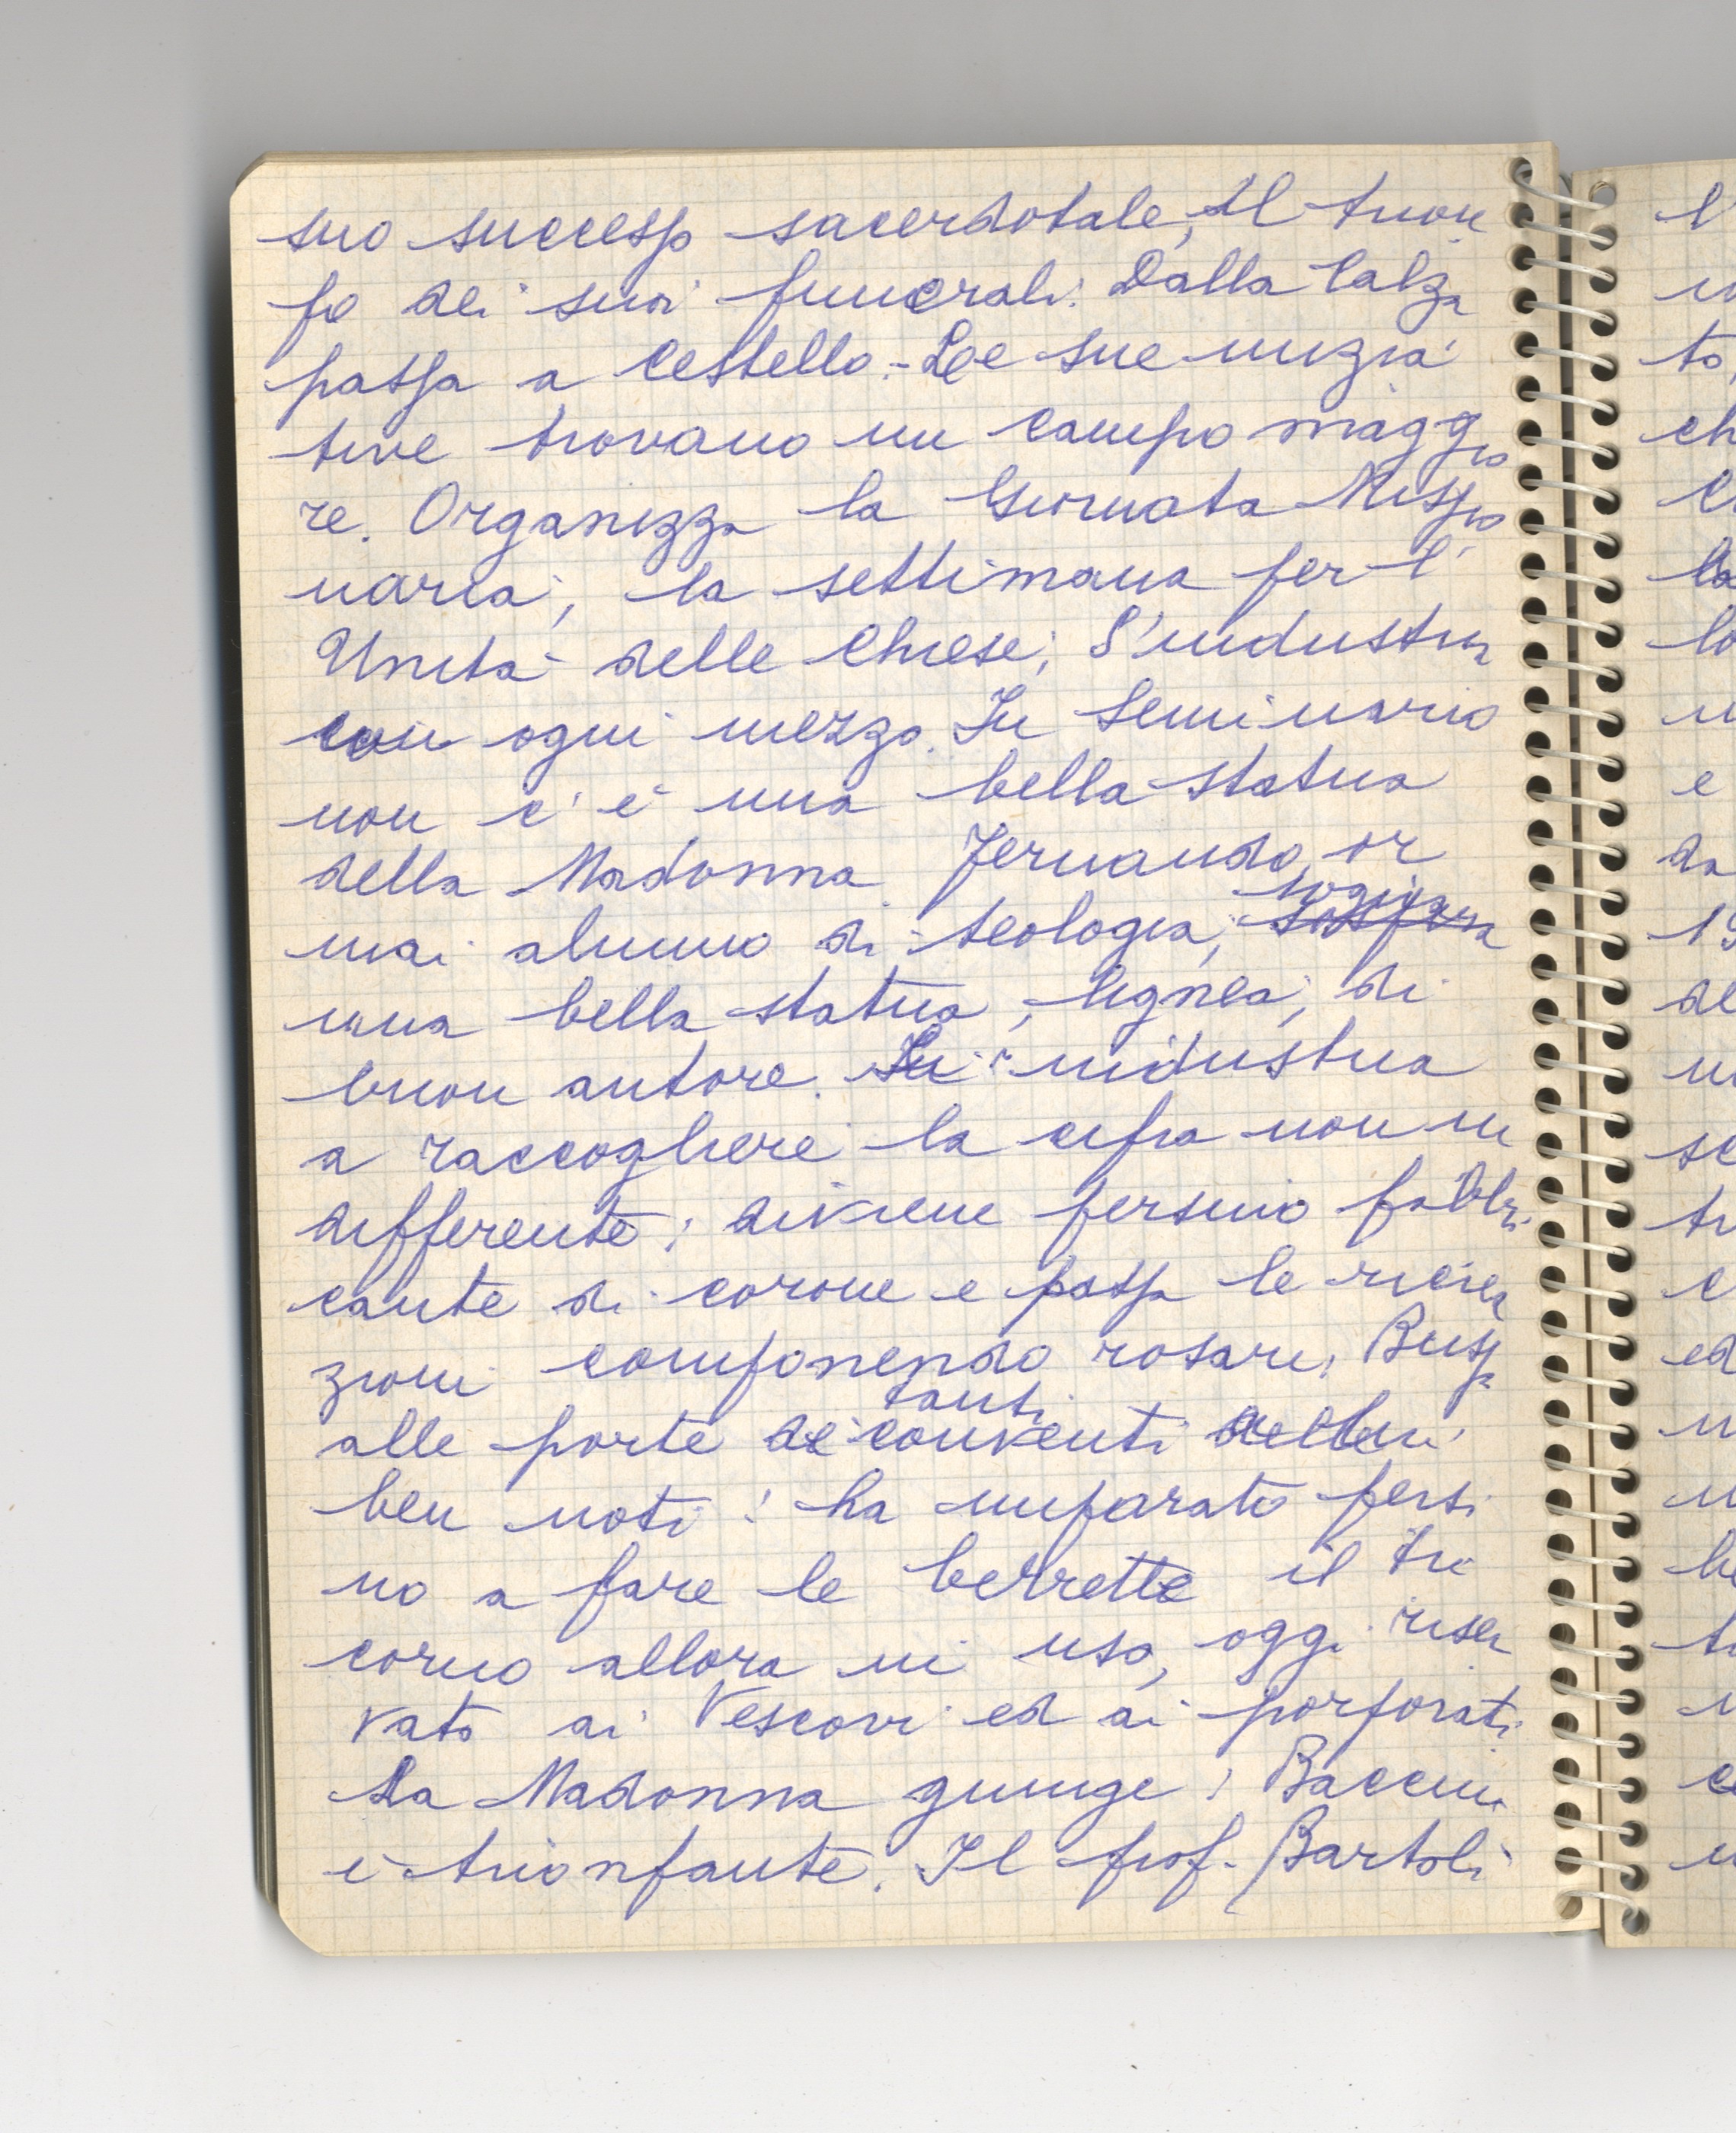 suo successo sacerdotale, il trion
fo dei suoi funerali. Dalla Calza
passa a Cestello. - Le sue inizia
tive trovano un campo maggio
re. Organizza la Giornata Missio
naria, la settimana per l'
Unità delle Chiese, S'industria
con ogni mezzo. In Seminario
non c'è una bella statua
della Madonna Fernando, or
mai alunno di teologia, sogna
una bella statua, lignea, di
buon autore. Si industria
a raccogliere la cifra non in
differente; diviene persino fabbri
cante di corone e passa le ricrea
zioni componendo rosari. Bussa
alle porte di tanti conventi
ben noti: ha imparato persi
no a fare le berrette il tri
corno allora in uso, oggi riser
vato ai Vescovi ed ai porporati
La Madonna giunge; Baccini
è trionfante. Il prof. Bartoli